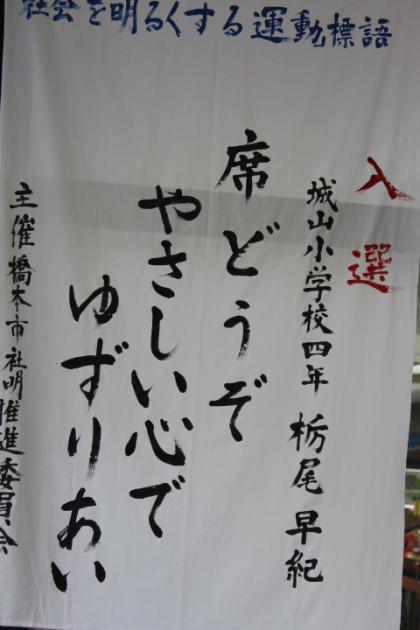 社会を明るくする運動標語
入選
城山小学校四年 栃尾早紀
席どうぞ
やさしい心で
ゆずりあい
主催橋本市社明推進委員会